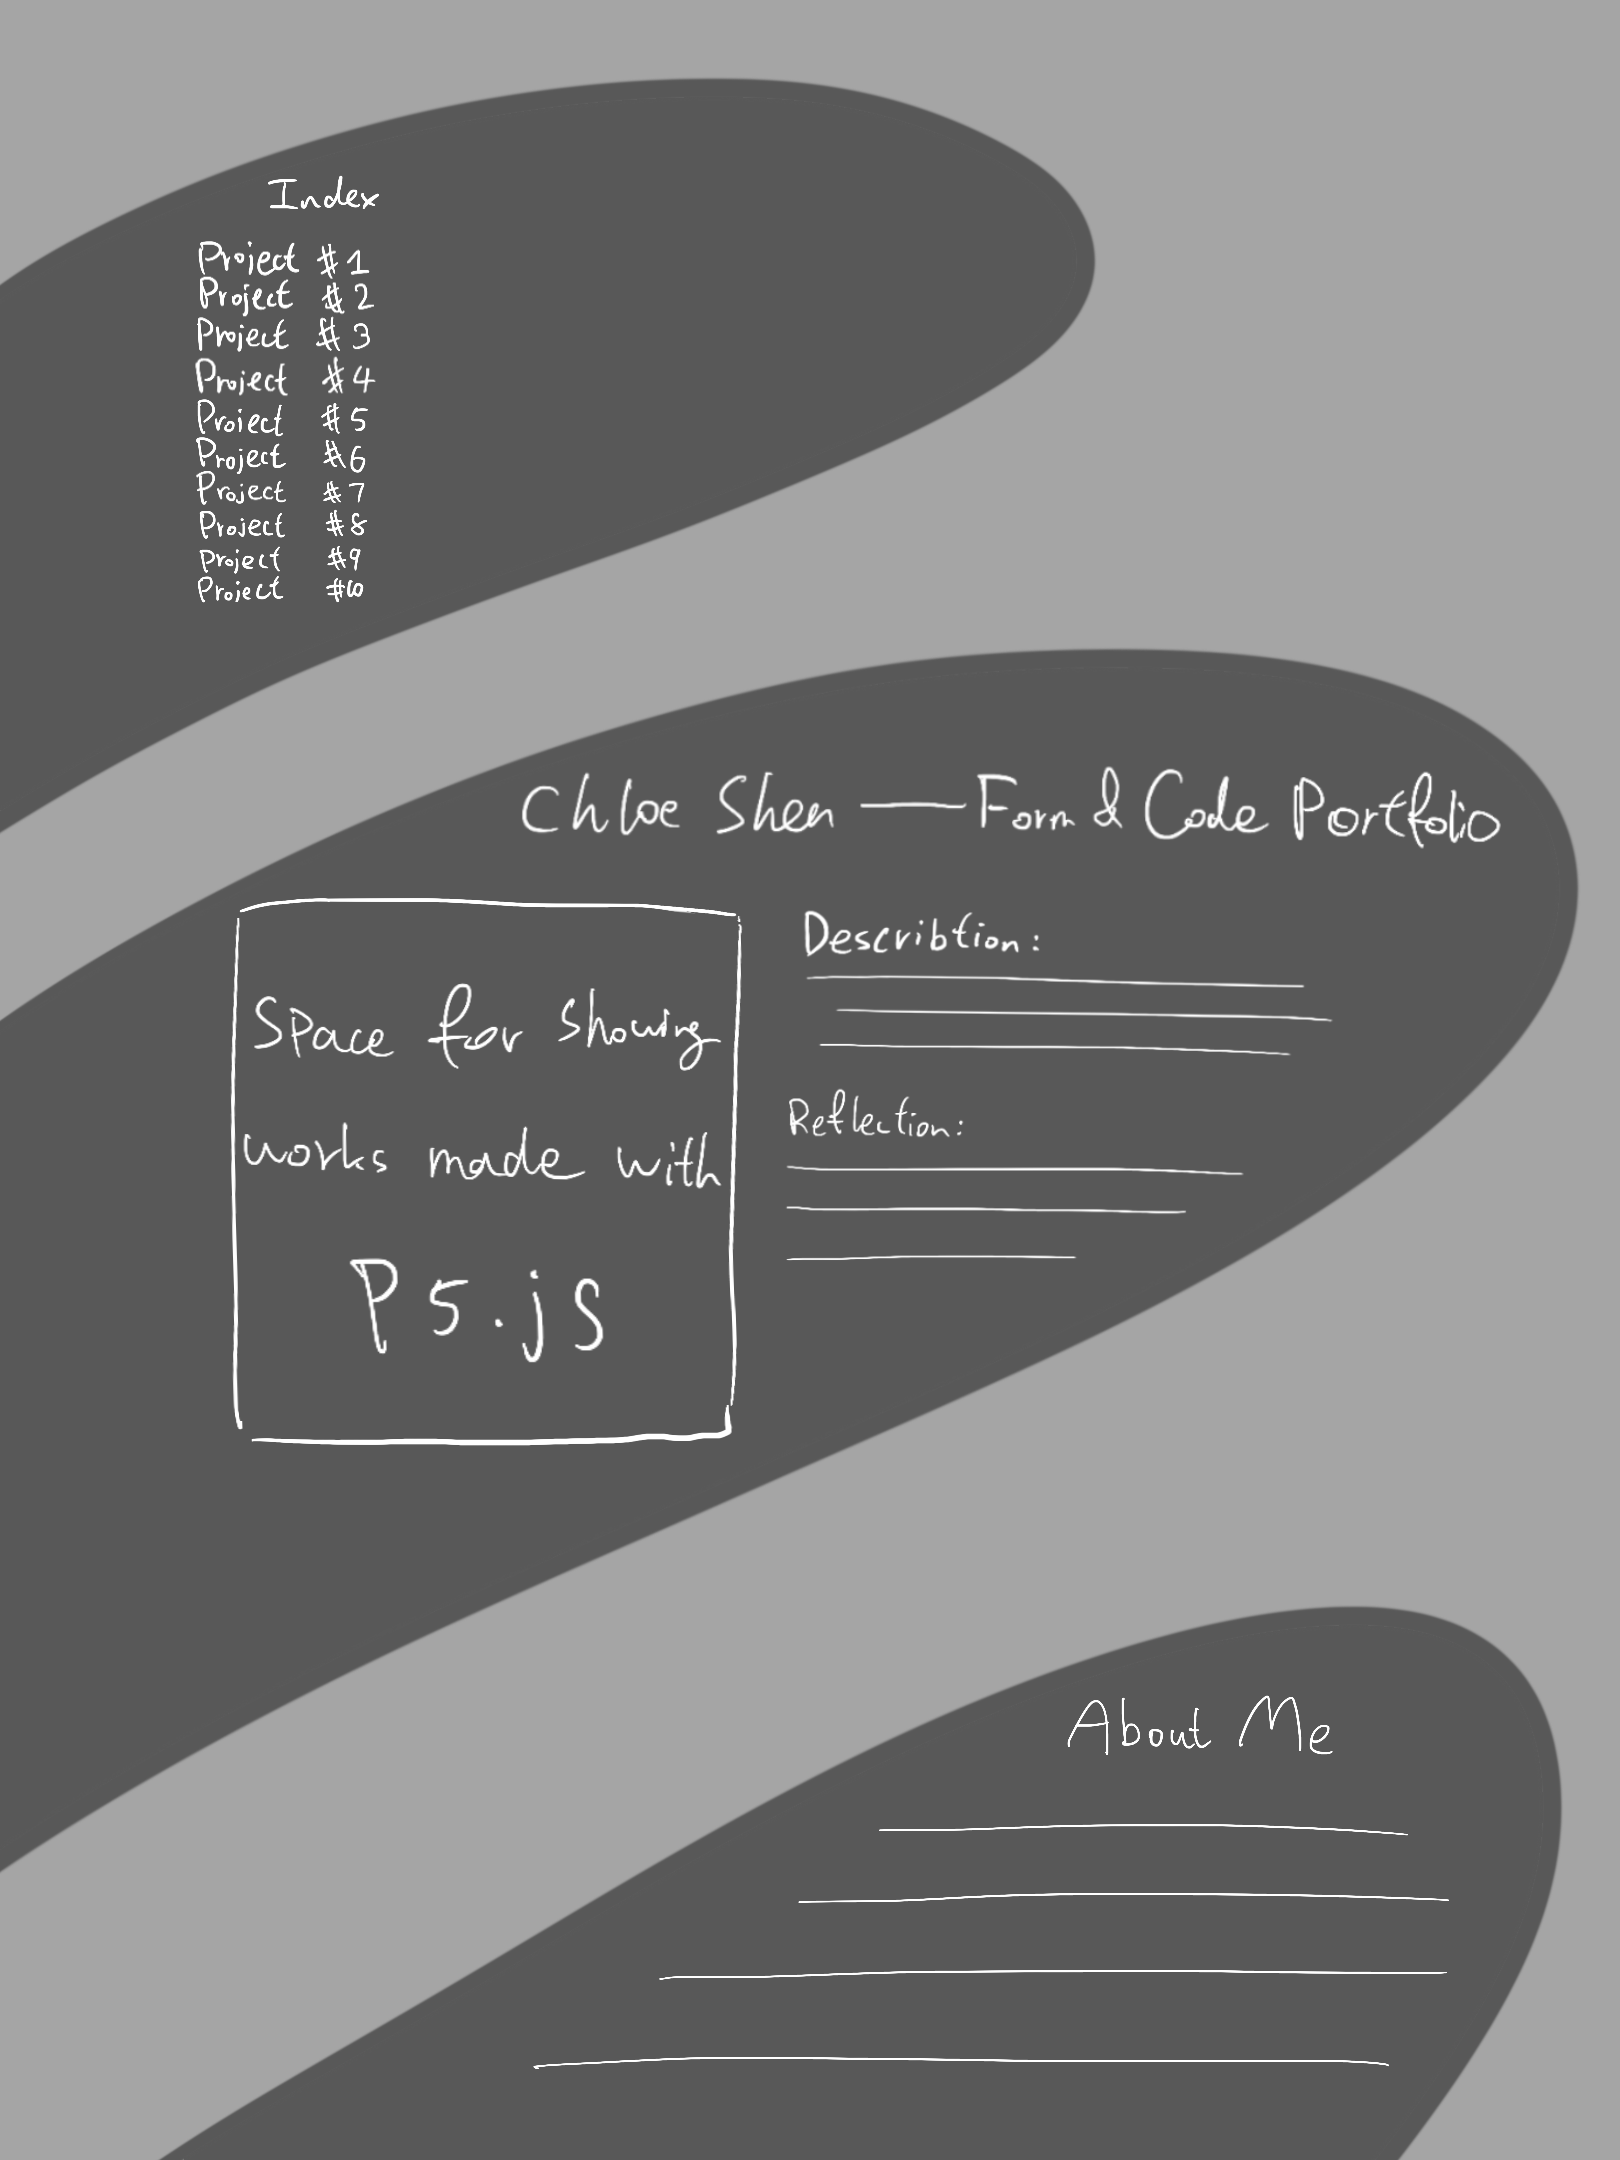 Index
Project #1
Project #2
Project #3
Project #4
Project #5
Project #6
Project #7
Project #8
Project #9
Project #10
Chloe Shen — Form & Code Portfolio
Space for showing
works made with
P5.js
Describtion:
Reflection:
About Me